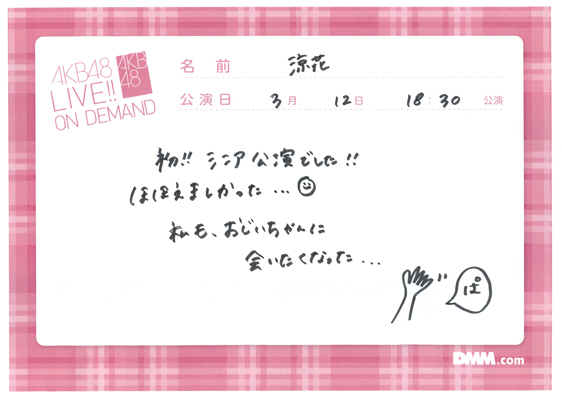 AKB48
LIVE!!
ON DEMAND
AKB
48
名前 涼花
公演日 3月 12日 18:30 公演
初!! シニア公演でした!!
ほほえましかった...
私も、おじいちゃんに
会いたくなった...
ぱ
DMM.com